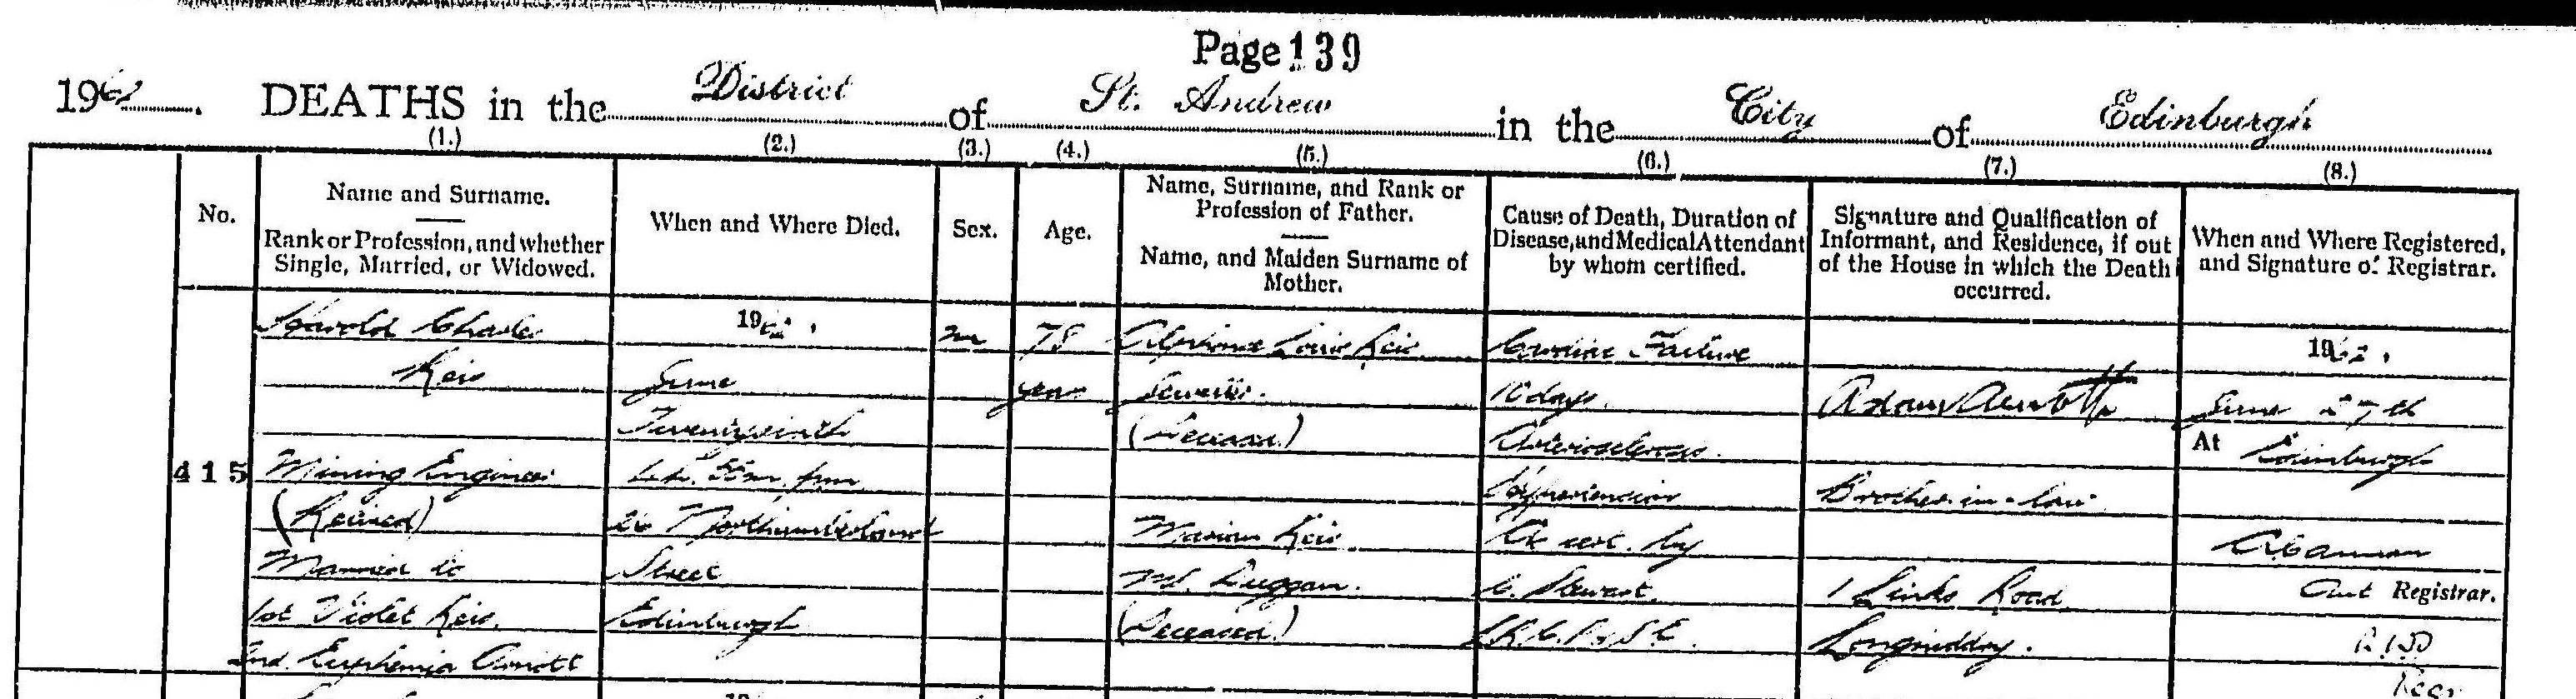 Page 139
1962. DEATHS in the District of St. Andrew in the City of Edinburgh
(1.) (2.) (3.) (4.) (5.) (6.) (7.) (8.)
No.
Name and Surname.
Rank or Profession, and whether
Single, Married, or Widowed.
When and Where Died.
Sex.
Age.
Name, Surname, and Rank or
Profession of Father.
Name, and Maiden Surname of
Mother.
Cause of Death, Duration of
Disease, and Medical Attendant
by whom certified.
Signature and Qualification of
Informant, and Residence, if out
of the House in which the Death
occurred.
When and Where Registered,
and Signature of Registrar.
415
Harold Charles
Reis
Mining Engineer
(Retired)
Married to
1st Violet Reis
2nd. Euphemia Arnott
1962.
June
26 Northumberland
Street
Edinburgh
M
78
years
Alphonse Louis Reis
Jeweller.
(Deceased)
Marion Reis
M.S. Duggan.
(Deceased)
Cardiac Failure
10 days.
Arteriosclerosis.
Hypertension
As cert. by
C. Stewart
L.R.C.P. & S.E.
Adam Arnott
Brother-in-law
1 Links Road
Longniddry.
1962.
June 27th
At Edinburgh
Asst Registrar.